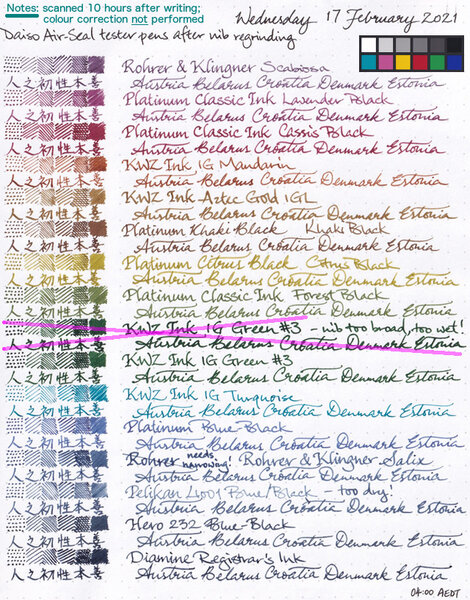 Notes: scanned 10 hours after writing;
colour correction not performed
Wednesday 17 February 2021
Daiso Air-Seal tester pens after nib regrinding
Rohrer & Klingner Scabiosa
人之初性本善 Austria Belarus Croatia Denmark Estonia
Platinum Classic Ink Lavender Black
人之初性本善 Austria Belarus Croatia Denmark Estonia
Platinum Classic Ink Cassis Black
人之初性本善 Austria Belarus Croatia Denmark Estonia
KWZ Ink IG Mandarin
人之初性本善 Austria Belarus Croatia Denmark Estonia
KWZ Ink Aztec Gold IGL
人之初性本善 Austria Belarus Croatia Denmark Estonia
Platinum Khaki Black Khaki Black
人之初性本善 Austria Belarus Croatia Denmark Estonia
Platinum Citrus Black Citrus Black
人之初性本善 Austria Belarus Croatia Denmark Estonia
Platinum Classic Ink Forest Black
人之初性本善 Austria Belarus Croatia Denmark Estonia
KWZ Ink IG Green #3 – nib too broad, too wet!
人之初性本善 Austria Belarus Croatia Denmark Estonia
KWZ Ink IG Green #3
人之初性本善 Austria Belarus Croatia Denmark Estonia
KWZ Ink IG Turquoise
人之初性本善 Austria Belarus Croatia Denmark Estonia
Platinum Blue-Black
人之初性本善 Austria Belarus Croatia Denmark Estonia
Rohrer needs narrowing! Rohrer & Klingner Salix
人之初性本善 Austria Belarus Croatia Denmark Estonia
Pelikan 4001 Blue/Black – too dry!
人之初性本善 Austria Belarus Croatia Denmark Estonia
Hero 232 Blue-Black
人之初性本善 Austria Belarus Croatia Denmark Estonia
Diamine Registrar's Ink
人之初性本善 Austria Belarus Croatia Denmark Estonia
04:00 AEDT